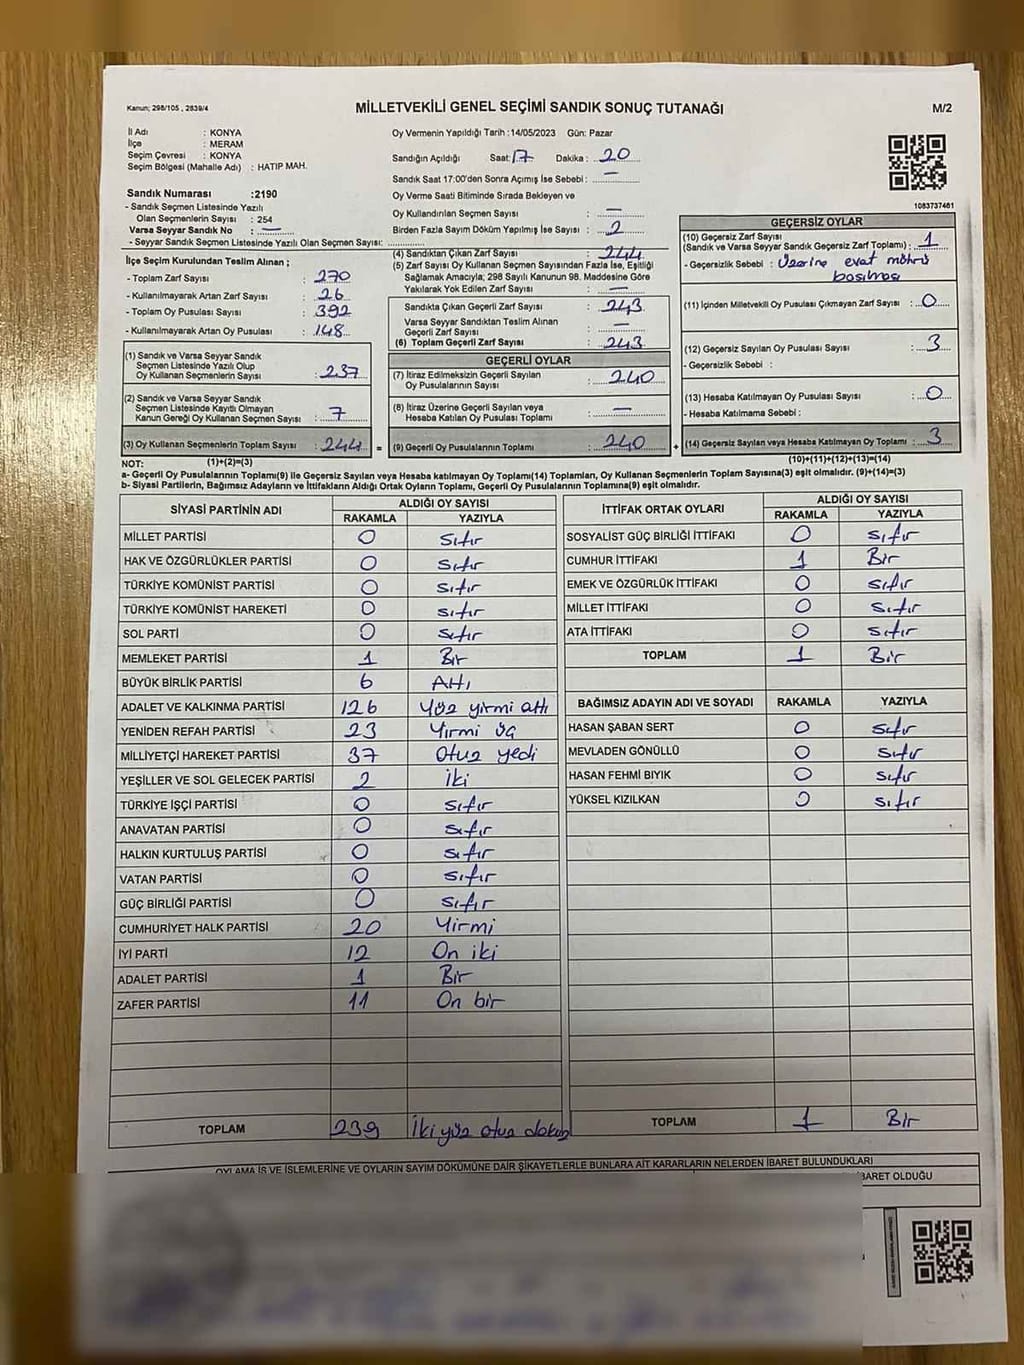 Kanun; 298/105 , 2839/4
MİLLETVEKİLİ GENEL SEÇİMİ SANDIK SONUÇ TUTANAĞI
M/2
İl Adı : KONYA
İlçe : MERAM
Seçim Çevresi : KONYA
Seçim Bölgesi (Mahalle Adı) : HATIP MAH.
Sandık Numarası :2190
- Sandık Seçmen Listesinde Yazılı
Olan Seçmenlerin Sayısı : 254
Varsa Seyyar Sandık No : —
- Seyyar Sandık Seçmen Listesinde Yazılı Olan Seçmen Sayısı: ............
Oy Vermenin Yapıldığı Tarih :14/05/2023 Gün: Pazar
Sandığın Açıldığı Saat: 17 Dakika : 20
Sandık Saat 17:00'den Sonra Açımış İse Sebebi : —
Oy Verme Saati Bitiminde Sırada Bekleyen ve
Oy Kullandırılan Seçmen Sayısı : —
Birden Fazla Sayım Döküm Yapılmış İse Sayısı : 2
1083737461
İlçe Seçim Kurulundan Teslim Alınan ;
- Toplam Zarf Sayısı : 270
- Kullanılmayarak Artan Zarf Sayısı : 26
- Toplam Oy Pusulası Sayısı : 392
- Kullanılmayarak Artan Oy Pusulası : 148
(1) Sandık ve Varsa Seyyar Sandık
Seçmen Listesinde Yazılı Olup
Oy Kullanan Seçmenlerin Sayısı : 237
(2) Sandık ve Varsa Seyyar Sandık
Seçmen Listesinde Kayıtlı Olmayan
Kanun Gereği Oy Kullanan Seçmen Sayısı : 7
(3) Oy Kullanan Seçmenlerin Toplam Sayısı : 244 =
(1)+(2)=(3)
(4) Sandıktan Çıkan Zarf Sayısı : 244
(5) Zarf Sayısı Oy Kullanan Seçmen Sayısından Fazla İse, Eşitliği
Sağlamak Amacıyla; 298 Sayılı Kanunun 98. Maddesine Göre
Yakılarak Yok Edilen Zarf Sayısı : —
Sandıkta Çıkan Geçerli Zarf Sayısı : 243
Varsa Seyyar Sandıktan Teslim Alınan
Geçerli Zarf Sayısı : —
(6) Toplam Geçerli Zarf Sayısı : 243
GEÇERLİ OYLAR
(7) İtiraz Edilmeksizin Geçerli Sayılan
Oy Pusulalarının Sayısı : 240
(8) İtiraz Üzerine Geçerli Sayılan veya
Hesaba Katılan Oy Pusulası Toplamı : —
(9) Geçerli Oy Pusulalarının Toplamı : 240 +
GEÇERSİZ OYLAR
(10) Geçersiz Zarf Sayısı
(Sandık ve Varsa Seyyar Sandık Geçersiz Zarf Toplamı) : 1
- Geçersizlik Sebebi : Üzerine evat mührü
basılması
(11) İçinden Milletvekili Oy Pusulası Çıkmayan Zarf Sayısı : 0
(12) Geçersiz Sayılan Oy Pusulası Sayısı : 3
- Geçersizlik Sebebi :
(13) Hesaba Katılmayan Oy Pusulası Sayısı : 0
- Hesaba Katılmama Sebebi :
(14) Geçersiz Sayılan veya Hesaba Katılmayan Oy Toplamı : 3
(10)+(11)+(12)+(13)=(14)
NOT:
a- Geçerli Oy Pusulalarının Toplamı(9) ile Geçersiz Sayılan veya Hesaba katılmayan Oy Toplamı(14) Toplamları, Oy Kullanan Seçmenlerin Toplam Sayısına(3) eşit olmalıdır. (9)+(14)=(3)
b- Siyasi Partilerin, Bağımsız Adayların ve İttifakların Aldığı Ortak Oyların Toplamı, Geçerli Oy Pusulalarının Toplamına(9) eşit olmalıdır.
SİYASİ PARTİNİN ADI ALDIĞI OY SAYISI
RAKAMLA YAZIYLA
MİLLET PARTİSİ 0 Sıfır
HAK VE ÖZGÜRLÜKLER PARTİSİ 0 Sıfır
TÜRKİYE KOMÜNİST PARTİSİ 0 Sıfır
TÜRKİYE KOMÜNİST HAREKETİ 0 Sıfır
SOL PARTİ 0 Sıfır
MEMLEKET PARTİSİ 1 Bir
BÜYÜK BİRLİK PARTİSİ 6 Altı
ADALET VE KALKINMA PARTİSİ 126 Yüz yirmi altı
YENİDEN REFAH PARTİSİ 23 Yirmi üç
MİLLİYETÇİ HAREKET PARTİSİ 37 Otuz yedi
YEŞİLLER VE SOL GELECEK PARTİSİ 2 İki
TÜRKİYE İŞÇİ PARTİSİ 0 Sıfır
ANAVATAN PARTİSİ 0 Sıfır
HALKIN KURTULUŞ PARTİSİ 0 Sıfır
VATAN PARTİSİ 0 Sıfır
GÜÇ BİRLİĞİ PARTİSİ 0 Sıfır
CUMHURİYET HALK PARTİSİ 20 Yirmi
İYİ PARTİ 12 On iki
ADALET PARTİSİ 1 Bir
ZAFER PARTİSİ 11 On bir
TOPLAM 239 İki yüz otuz dokuz
İTTİFAK ORTAK OYLARI ALDIĞI OY SAYISI
RAKAMLA YAZIYLA
SOSYALİST GÜÇ BİRLİĞİ İTTİFAKI 0 Sıfır
CUMHUR İTTİFAKI 1 Bir
EMEK VE ÖZGÜRLÜK İTTİFAKI 0 Sıfır
MİLLET İTTİFAKI 0 Sıfır
ATA İTTİFAKI 0 Sıfır
TOPLAM 1 Bir
BAĞIMSIZ ADAYIN ADI VE SOYADI RAKAMLA YAZIYLA
HASAN ŞABAN SERT 0 Sıfır
MEVLADEN GÖNÜLLÜ 0 Sıfır
HASAN FEHMİ BIYIK 0 Sıfır
YÜKSEL KIZILKAN 0 Sıfır
TOPLAM 1 Bir
OYLAMA İŞ VE İŞLEMLERİNE VE OYLARIN SAYIM DÖKÜMÜNE DAİR ŞİKAYETLERLE BUNLARA AİT KARARLARIN NELERDEN İBARET BULUNDUKLARI
İBARET OLDUĞU